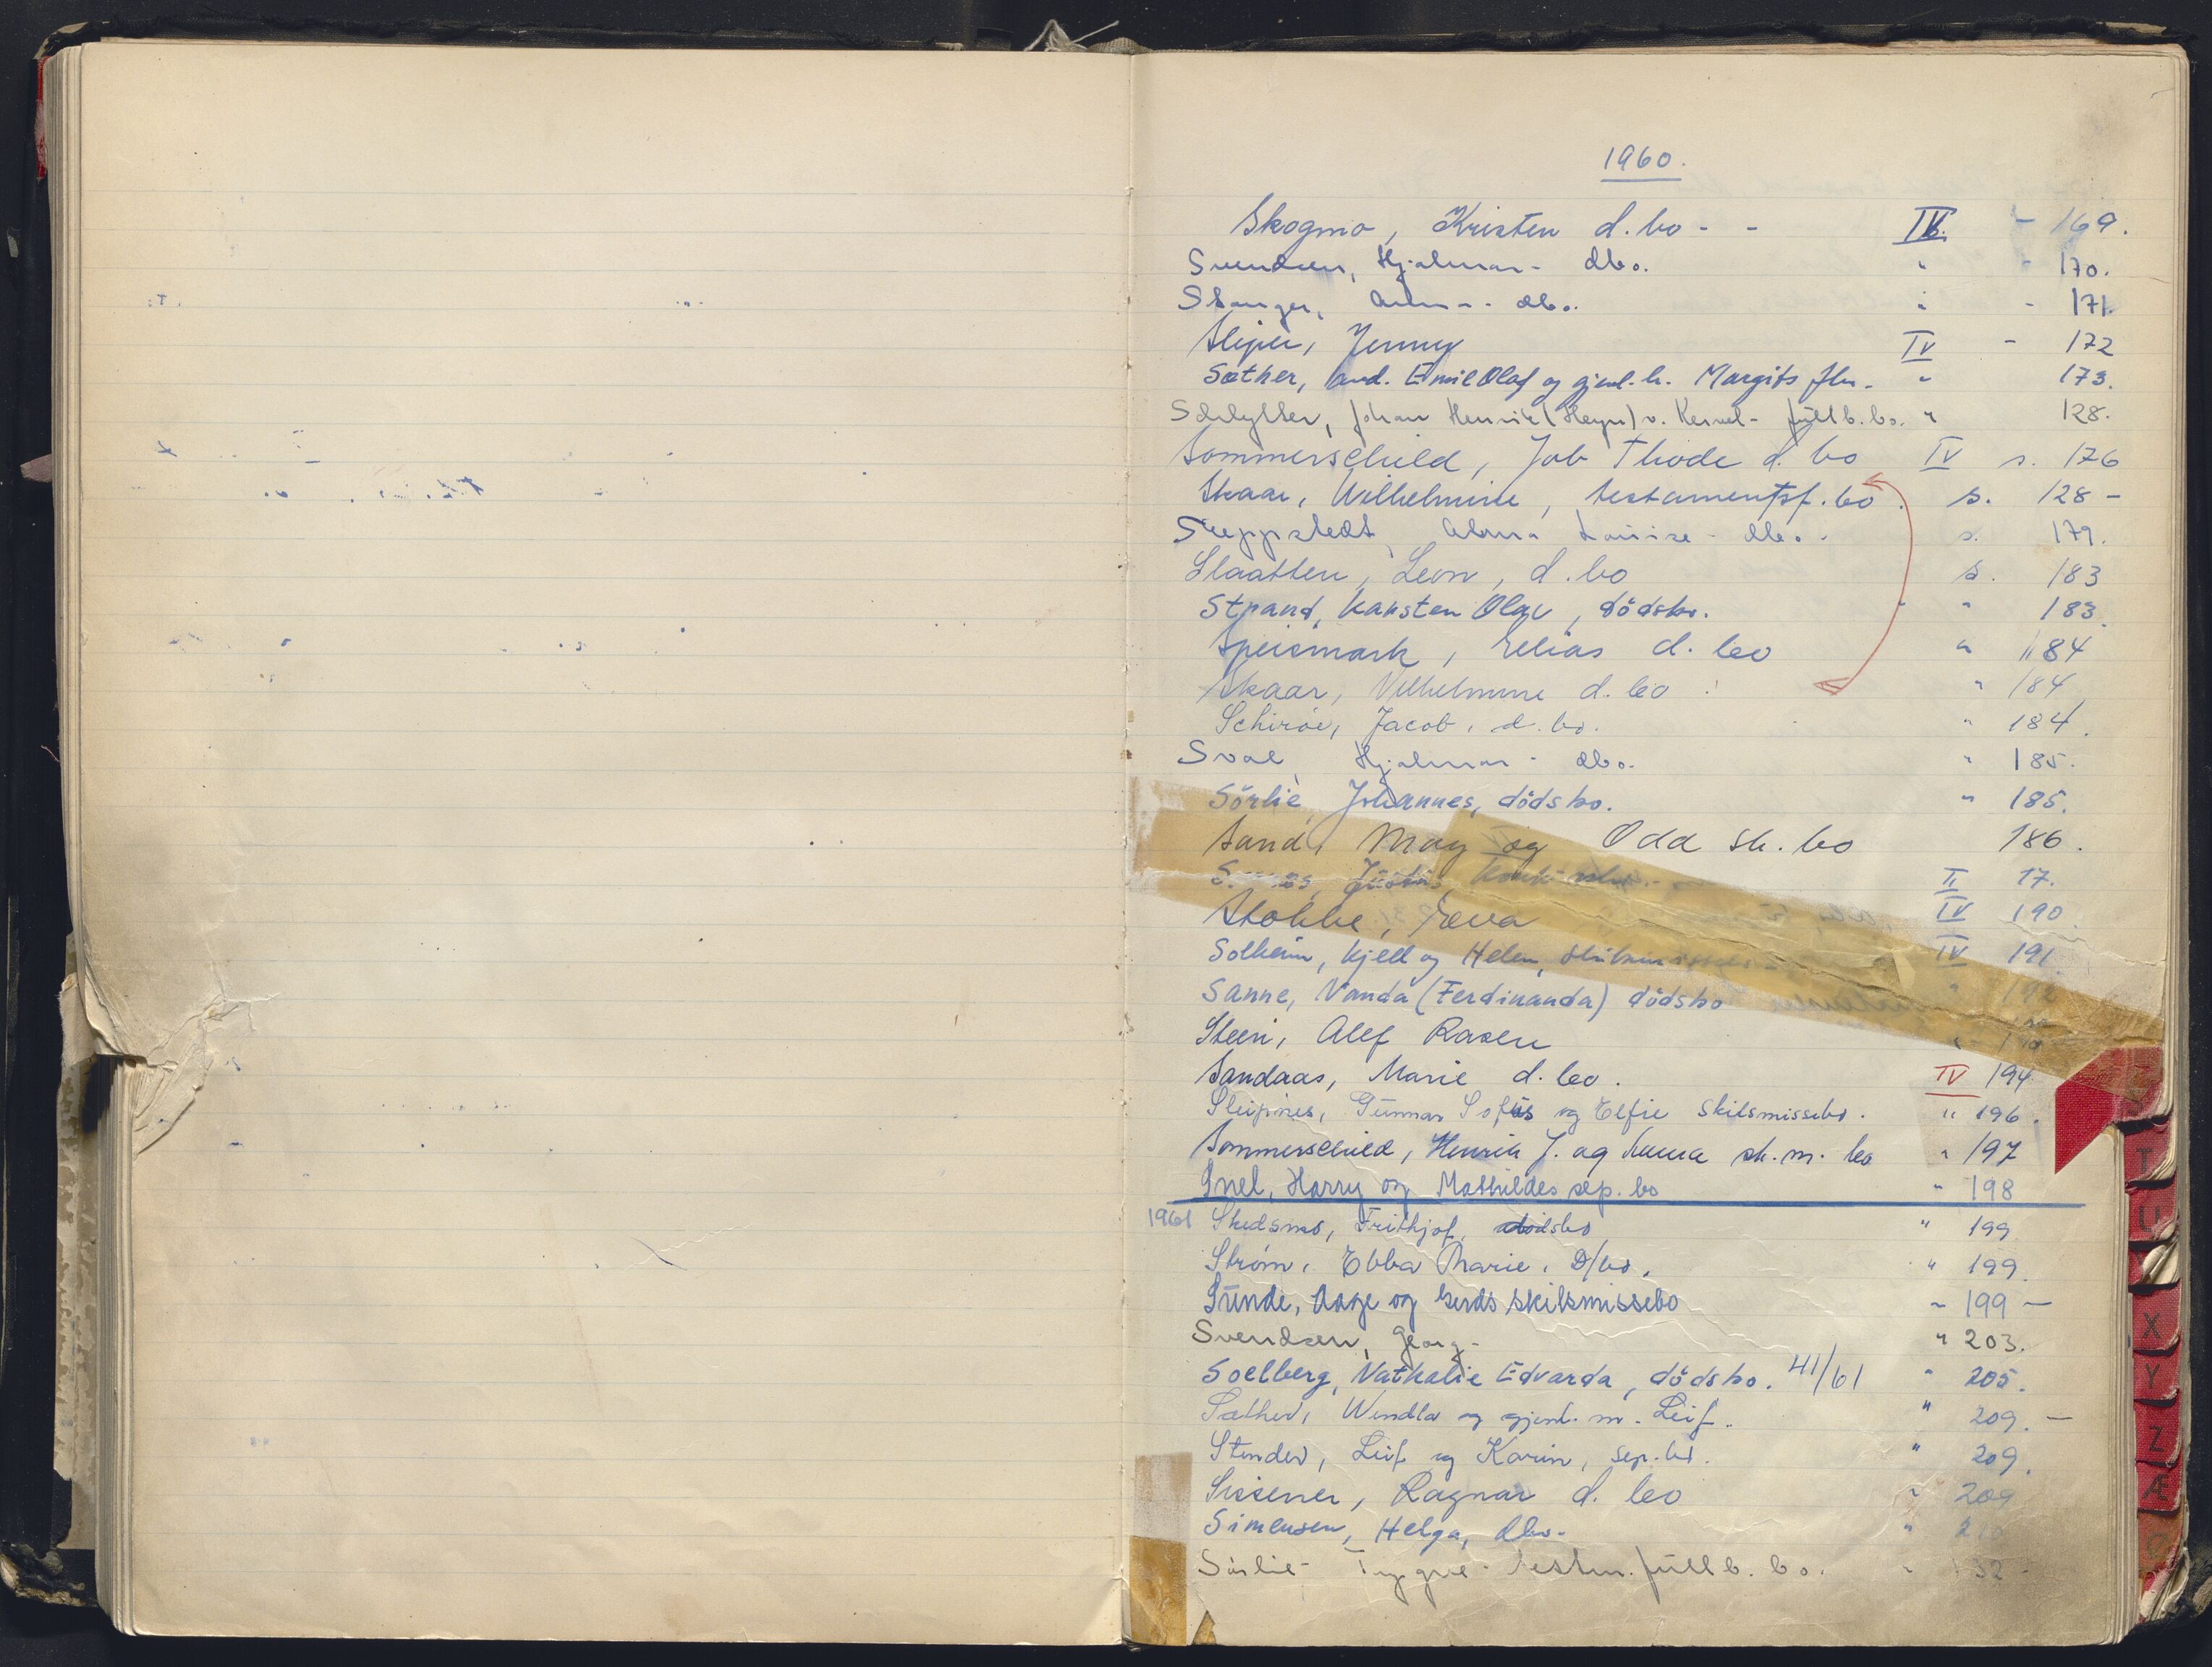 1960.
Skogmo, Kristen d. bo - - IV. - 169.
Svendsen, Hjalmar - dbo. " - 170.
Stanger, - dbo. " - 171.
Jenny IV - 172
Sæther, Emil Olaf og gjenl. h. Margits " 173.
Johan Henrik (Heyn) v. - fullb. bo. " 128.
Sommerschield, Job Thode d. bo IV s. 176
Skaar, Wilhelmine, testamentsf. bo. s. 128 -
Louise - dbo. - s. 179.
Slaatten, Leon, d. bo s. 183
Strand, Karsten Olav, dödsbo. " 183.
Speismark, Elias d. bo " 184
Skaar, Vilhelmine d. bo " 184
Schirøe, Jacob, d. bo. " 184.
Sval, Hjalmar - dbo. " 185.
Sörlie, Johannes, dödsbo. " 185.
Sand, May og Odd sk. bo 186.
II 17.
Stokke, IV 190
Solheim, Kjell og Helen, IV 191.
Sanne, Vanda (Ferdinanda) dödsbo
Steen, Alef Rasen
Sandaas, Marie d. bo. IV 194
Sleipnes, Gunnar Sofus og Elfie Skilsmissebo. " 196.
Sommerschield, Henrik J. og sk. m. bo " 197
Snel, Harry og Mathildes sep. bo " 198
1961 Skedsmo, Frithjof, dödsbo " 199
Strøm, Ebba Marie, D/bo. " 199.
Sunde, Aage og Gerds skilsmissebo " 199 -
Svendsen, Georg - " 203.
Soelberg, Nathalie Edvarda, dödsbo. 41/61 " 205.
Sæther, Wendla og gjenl. m. Leif. " 209. -
Stender, Leif og Karin, sep. bo. " 209.
Sissener, Ragnar d. bo " 209
Simensen, Helga, dbo - "
Sörlie - Trygve - testm. fullb. bo.
T
U
X
Y
Z
Æ